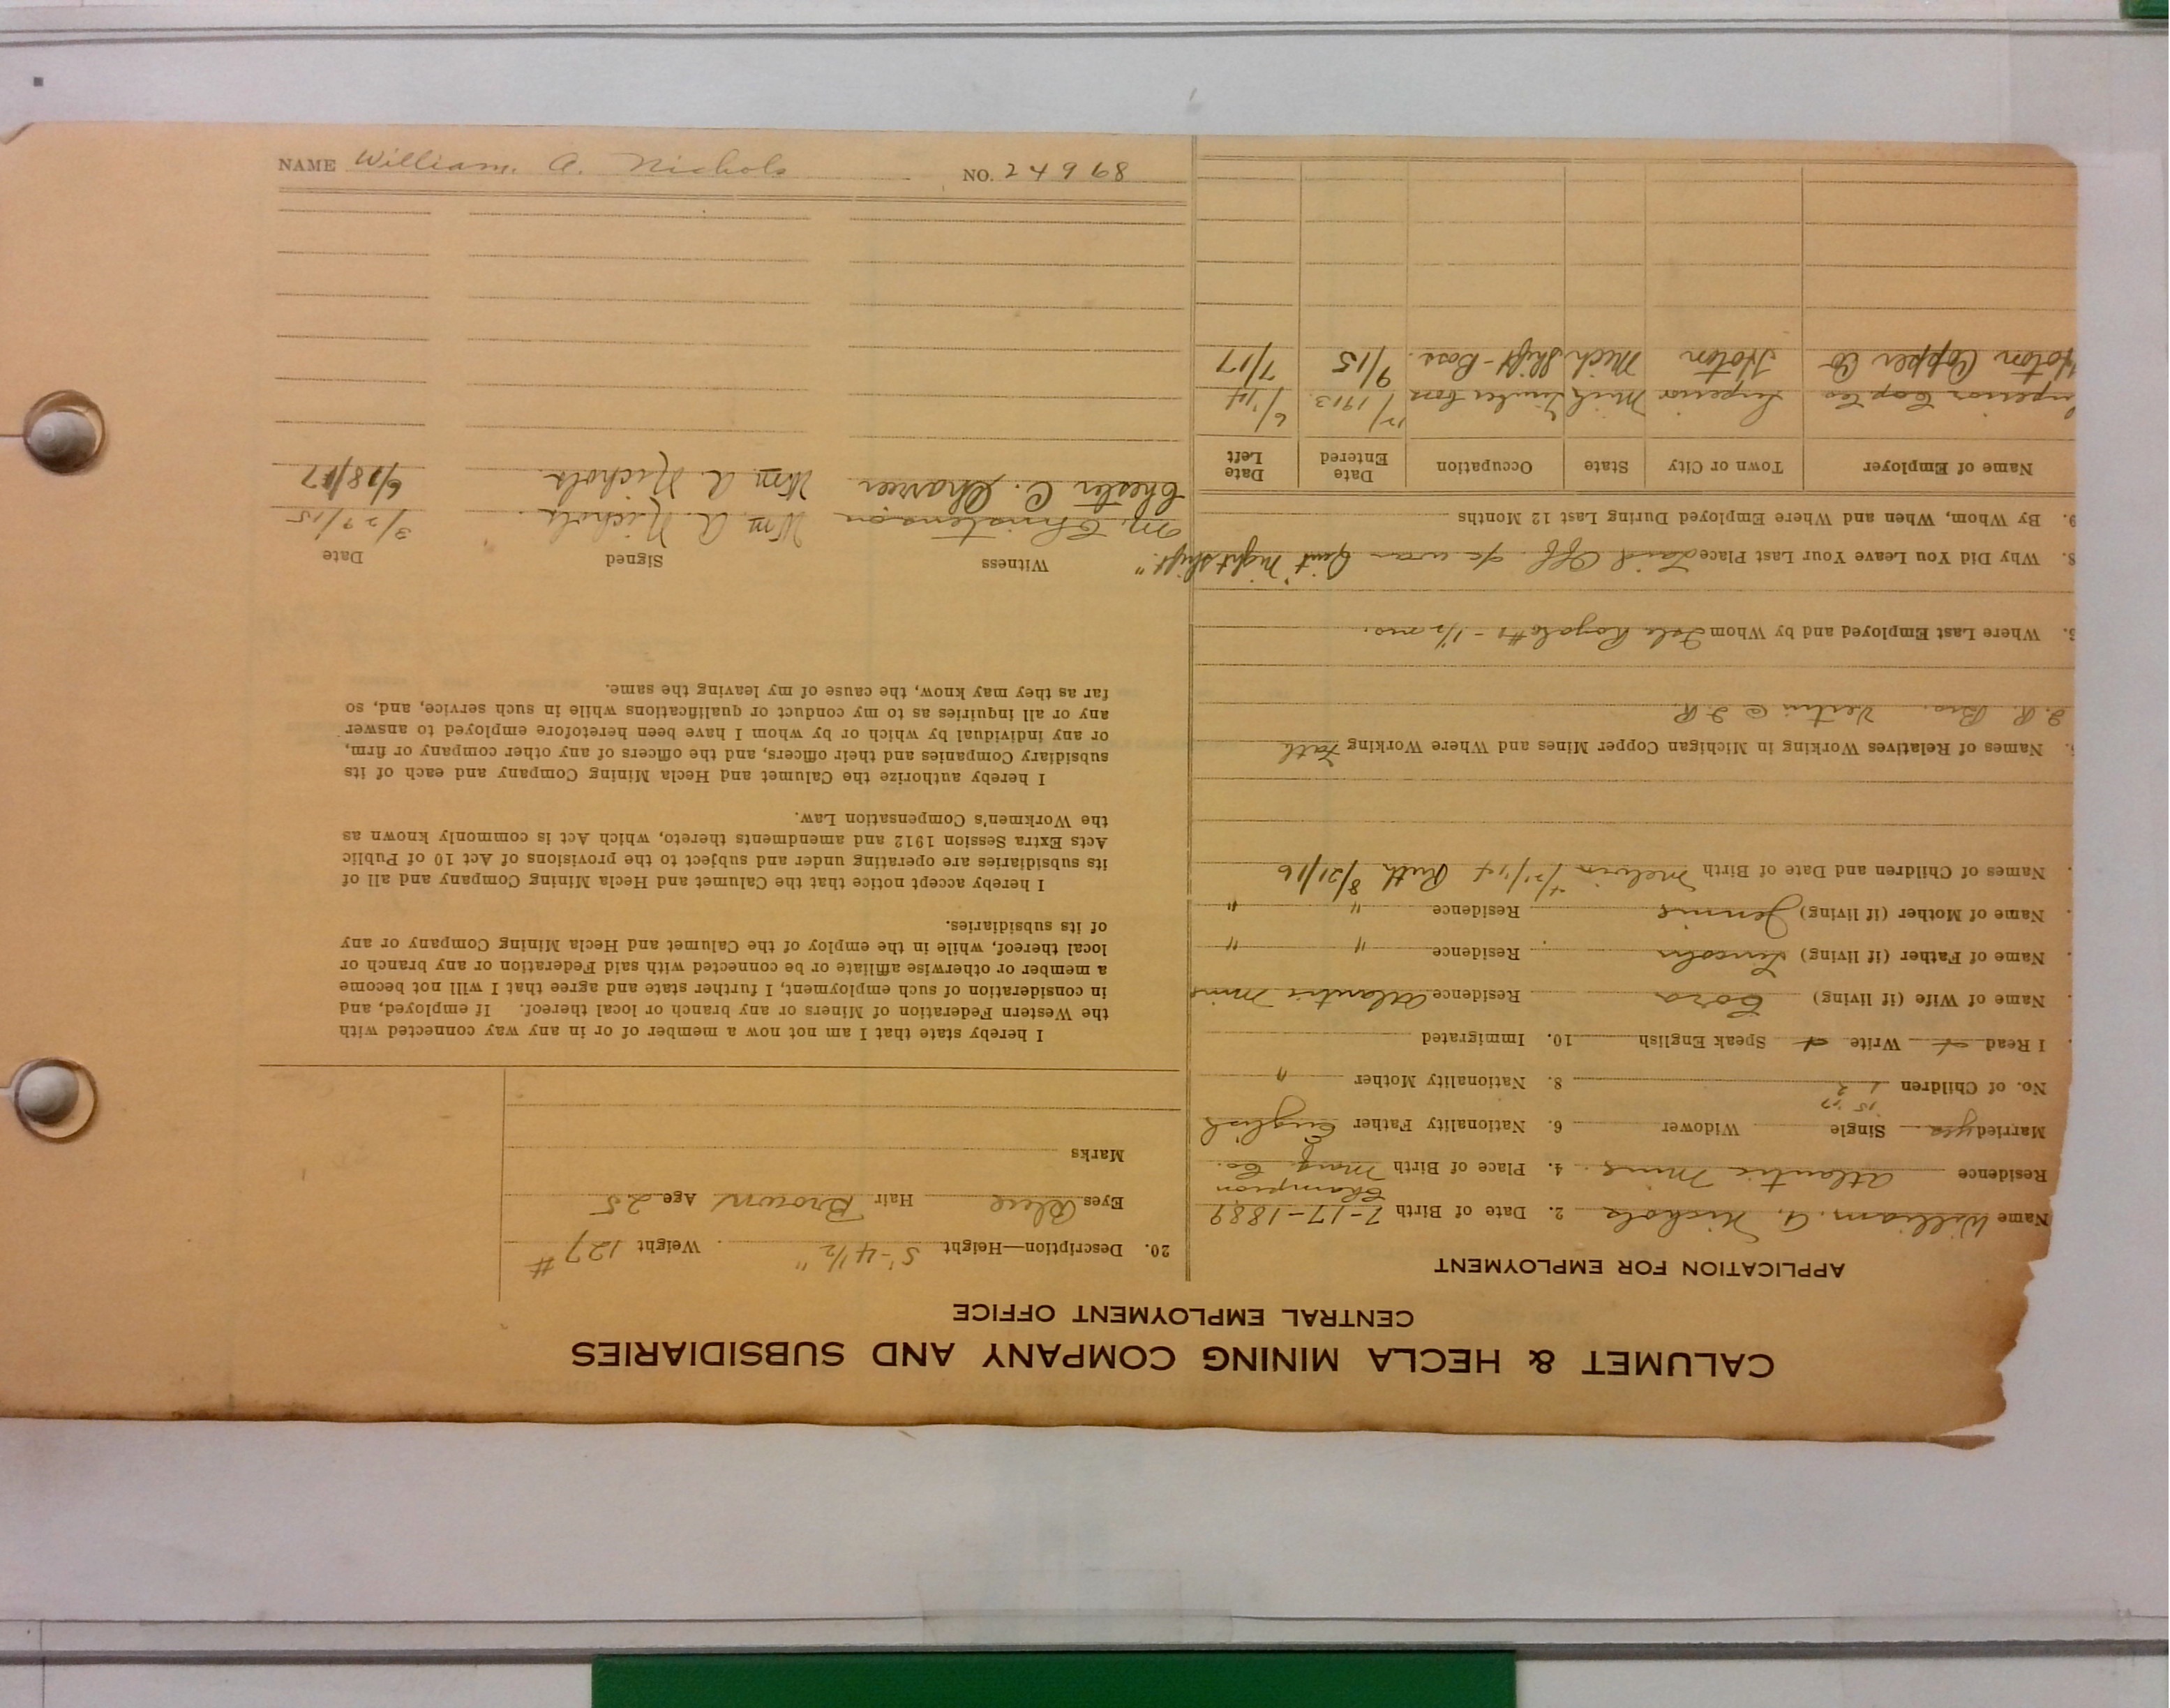 CALUMET & HECLA MINING COMPANY AND SUBSIDIARIES
CENTRAL EMPLOYMENT OFFICE
APPLICATION FOR EMPLOYMENT
Name William A. Nichols 2. Date of Birth 7-17-1889
Champion
Residence Atlantic Mine 4. Place of Birth Marq. Co.
Married yes Single Widower 6. Nationality Father English
'15 '17
No. of Children 1 2 8. Nationality Mother "
I Read Write Speak English 10. Immigrated
Name of Wife (if living) Cora Residence Atlantic Mine
Name of Father (if living) Lincoln Residence " "
Name of Mother (if living) Jennie Residence " "
Names of Children and Date of Birth Melvin 4/21/14 Ruth 8/21/16
Names of Relatives Working in Michigan Copper Mines and Where Working Fath
I.R. Bro. Vertin @ I.R.
Where Last Employed and by Whom Isle Royale #1 - 1/2 mo.
8. Why Did You Leave Your Last Place Laid Off. Quit "night shift."
9. By Whom, When and Where Employed During Last 12 Months
Name of Employer Town or City State Occupation Date Entered Date Left
Superior Cop Co Superior Mich Timber boss 12/1913 6/'14
Hoton Copper Co Hoton Mich Shift-Boss. 9/15 7/17
20. Description—Height 5'-4 1/2" Weight 127#
Eyes Blue Hair Brown Age 25
Marks
I hereby state that I am not now a member of or in any way connected with
the Western Federation of Miners or any branch or local thereof. If employed, and
in consideration of such employment, I further state and agree that I will not become
a member or otherwise affiliate or be connected with said Federation or any branch or
local thereof, while in the employ of the Calumet and Hecla Mining Company or any
of its subsidiaries.
I hereby accept notice that the Calumet and Hecla Mining Company and all of
its subsidiaries are operating under and subject to the provisions of Act 10 of Public
Acts Extra Session 1912 and amendments thereto, which Act is commonly known as
the Workmen's Compensation Law.
I hereby authorize the Calumet and Hecla Mining Company and each of its
subsidiary Companies and their officers, and the officers of any other company or firm,
or any individual by which or by whom I have been heretofore employed to answer
any or all inquiries as to my conduct or qualifications while in such service, and, so
far as they may know, the cause of my leaving the same.
Witness Signed Date
M. Christenson Wm. A. Nichols. 3/27/15
Chester C. Wm. A. Nichols. 6/18/17
NAME William A. Nichols NO. 24968